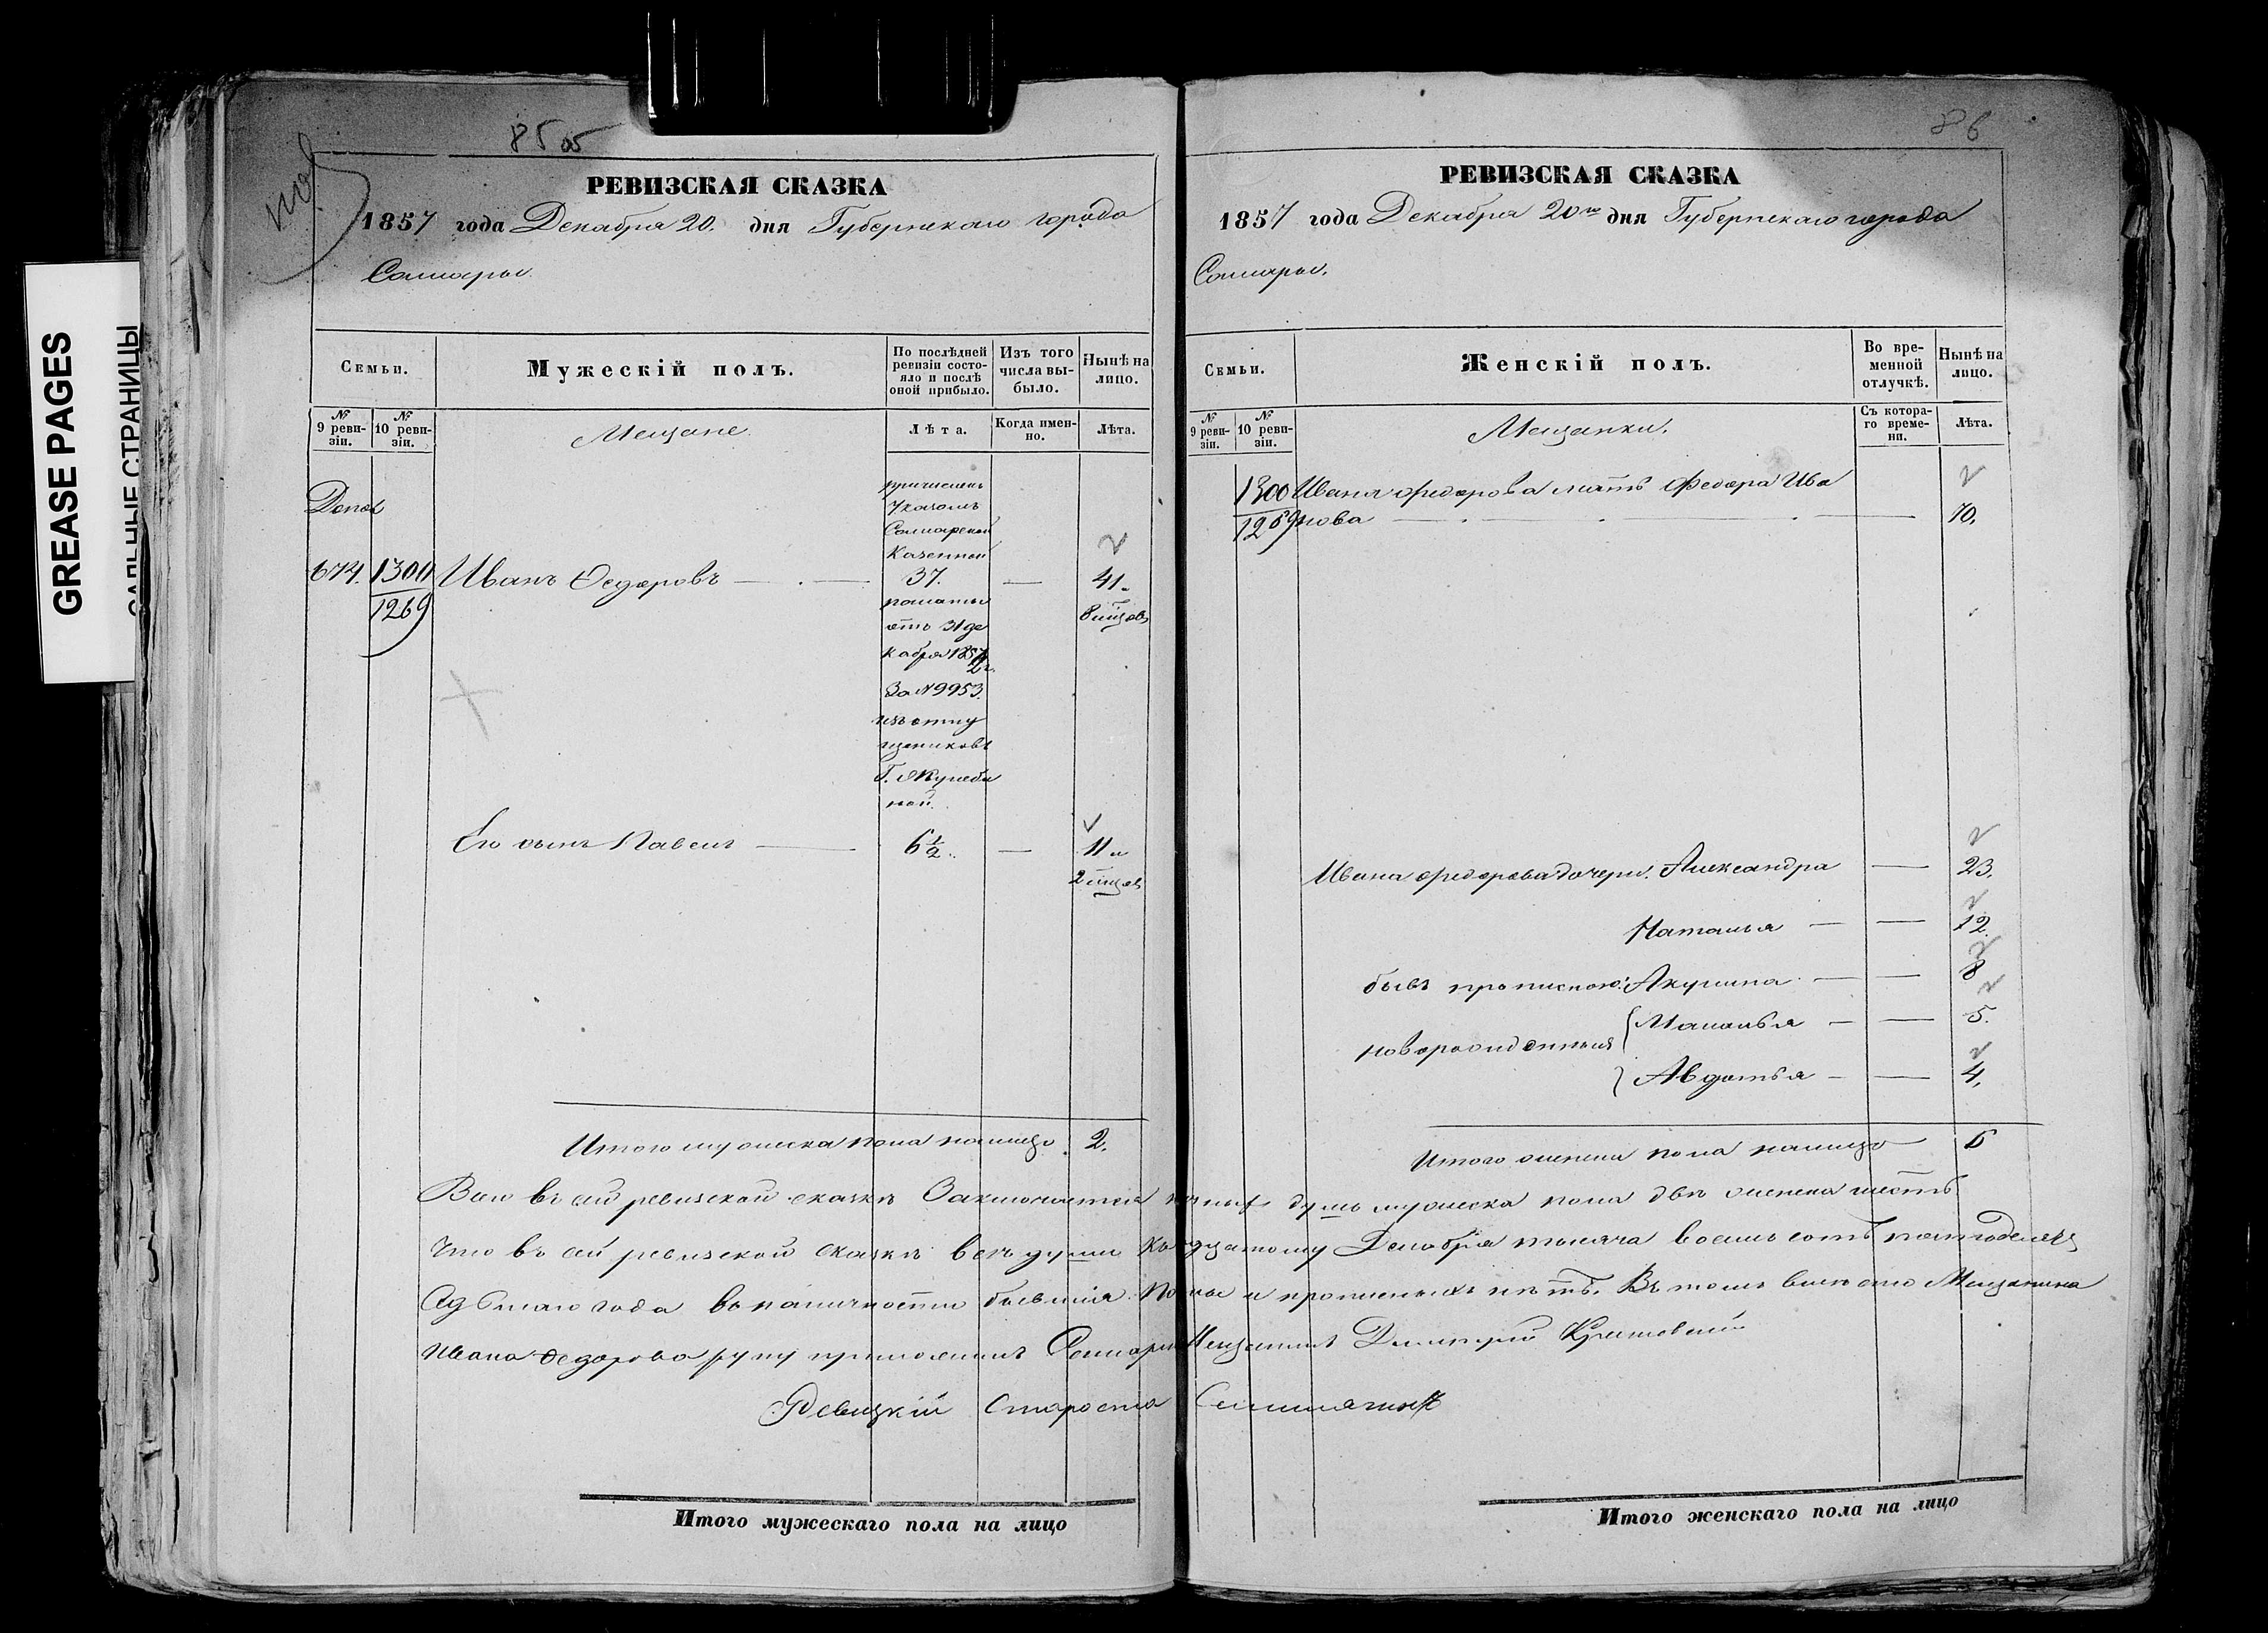 GREASE PAGES
САЛЬНЫЕ СТРАНИЦЫ
85 об
РЕВИЗСКАЯ СКАЗКА
1857 года Декабря 20. дня Губернскаго города
Самары.
Семьи.
Мужескій полъ.
По послѣдней ревизіи состояло и послѣ оной прибыло.
Изъ того числа выбыло.
Нынѣ на лицо.
№ 9 ревизіи.
№ 10 ревизіи.
Мещане
Лѣта.
Когда именно.
Лѣта.
Допол
причисленъ
Указомъ
Самарской
Казенной
674. 1300 Иванъ Ѳедоровъ — 37. — 41.
1269
палаты
отъ 31 де
кабря 185
За №9953.
изъ отпу
щениковъ
Г.
ной.
Его сынъ Павелъ — 6½ — 11
Итого мужеска пола налицо 2.
Итого мужескаго пола на лицо
86
РЕВИЗСКАЯ СКАЗКА
1857 года Декабря 20го дня Губернскаго города
Самары.
Семьи.
Женскій полъ.
Во временной отлучкѣ.
Нынѣ на лицо.
№ 9 ревизіи.
№ 10 ревизіи.
Мещанки.
Съ котораго времени.
Лѣта.
1300 Ивана Федорова мать Федора Ива
1269 нова — 70.
Ивана Федорова дочери. Александра — 23.
Наталья — 12.
бывъ прописною: Акулина — 8
новорожденныя Маланья — 5.
Авдотья — 4.
Итого женска пола налицо 6
Всего въ сей ревизской сказкѣ Заключается душъ мужеска пола двѣ женска шесть
Что въ сей ревизской сказкѣ всѣ души Къ Декабря тысяча восемь сотъ пятьдесятъ
Седьмаго года въ наличности бывшія и прописныхъ нѣтъ. Въ томъ вмѣсто Мещанина
Ивана Федорова руку приложилъ Мещанинъ Дмитрій
Ревизкій Староста
Итого женскаго пола на лицо